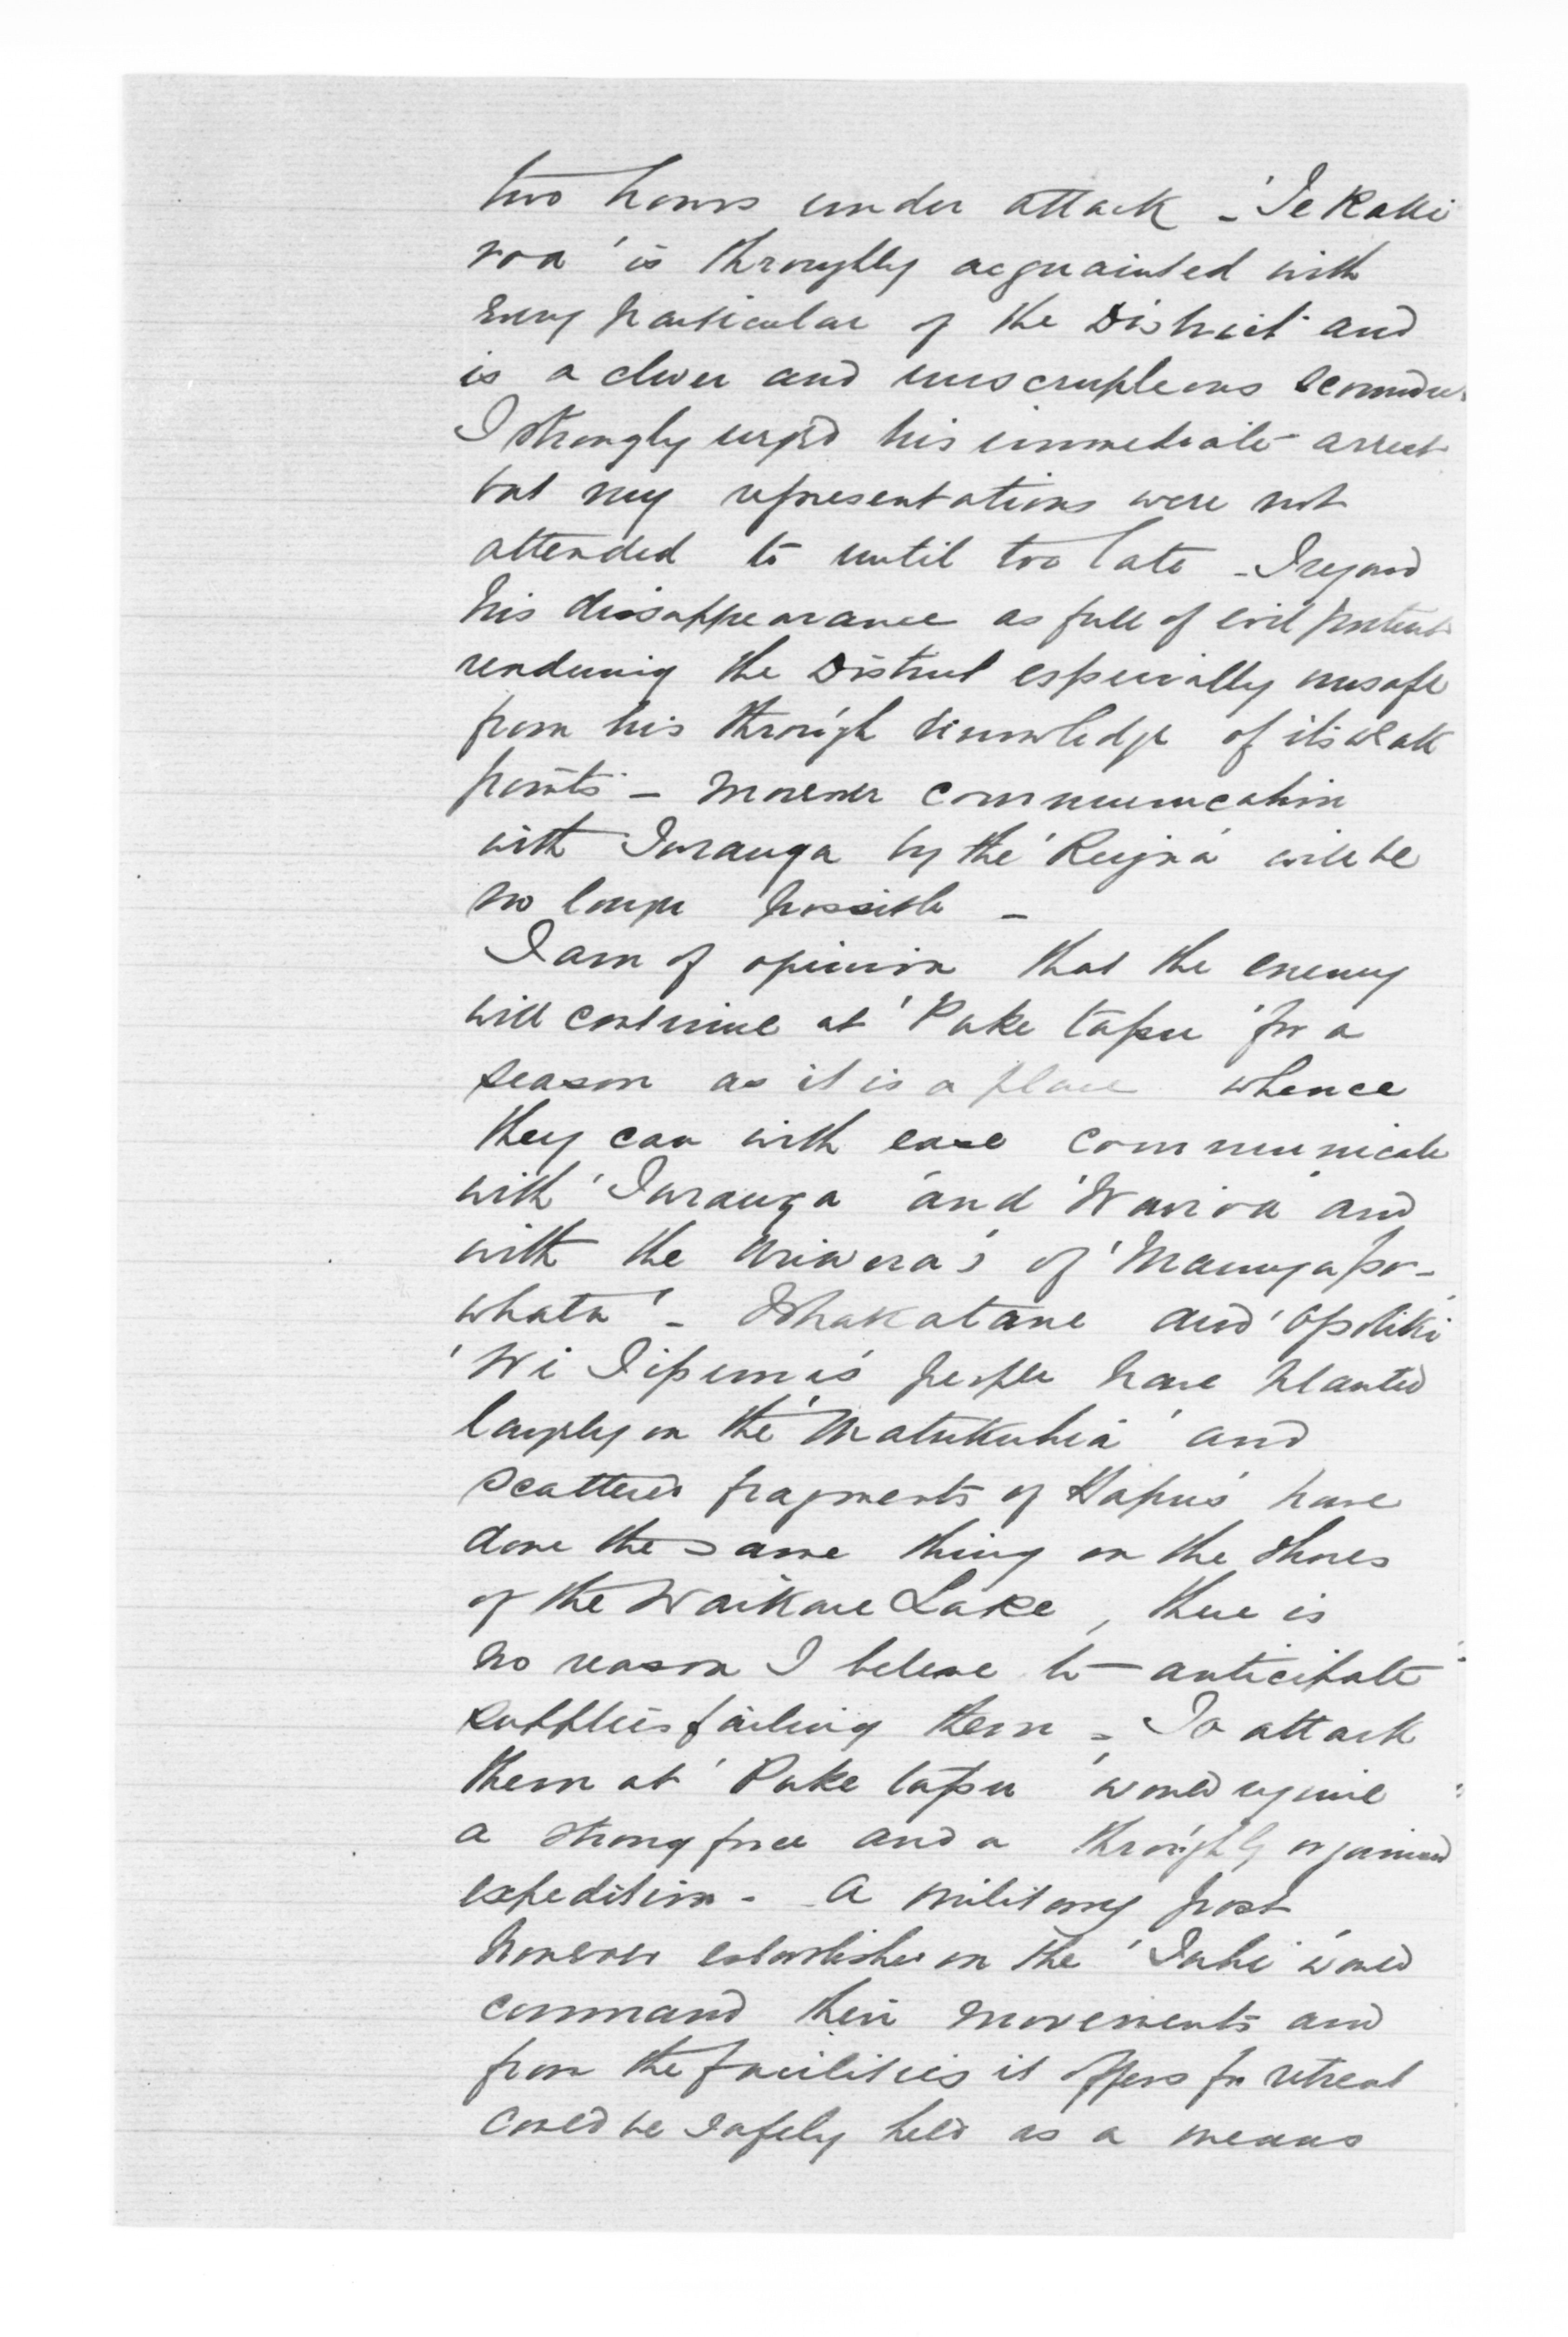 two hours under attack – 'Te Raki
roa' is throughly acquainted with
every particular of the District and
is a clever and unscrupleous scoundr
I strongly urged his immediate arrest
but my representations were not
attended to until too late – I regard
his dissappearance as full of evil portent
rendering the District especially unsafe
from his through knowledge of its weak
points – Moreover communication
with Turanga by the 'Reinga' will be
no longer possible –
I am of opinion that the enemy
will continue at 'Puke tapu' for a
season as it is a place whence
they can with ease communicate
with 'Turanga' and 'Wairoa' and
with the Uriwera's of 'Maungapo-
whatu' – Whakatane and 'Opotiki
'Wi Tipuna's' people have planted
largely on the 'Matukuhia' and
scattered fragments of Hapu's have
done the same thing on the shores
of the Waikare Lake, there is
no reason I beleive to anticipate
supplies failing them – To attack
them at 'Puke tapu' would require
a strong force and a throughly organised
expedition – A military post
however established on the 'Tuhi' would
command their movements and
from the facilities it offers for retreat
could be safely held as a means